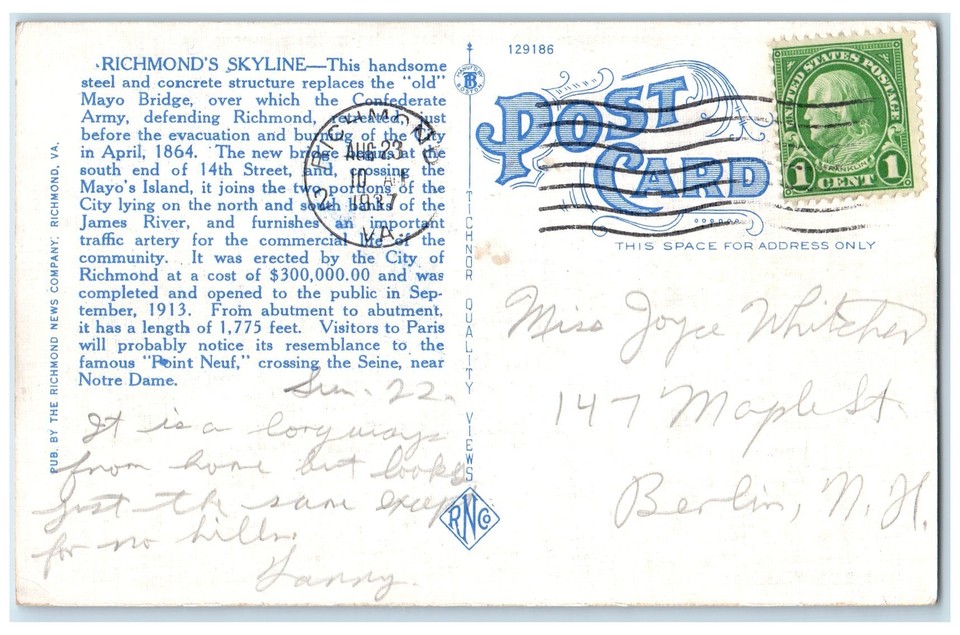 RICHMOND'S SKYLINE—This handsome
steel and concrete structure replaces the "old"
Mayo Bridge, over which the Confederate
Army, defending Richmond, retreated, just
before the evacuation and burning of the City
in April, 1864. The new bridge begins at the
south end of 14th Street, and, crossing the
Mayo's Island, it joins the two portions of the
City lying on the north and south banks of the
James River, and furnishes an important
traffic artery for the commercial life of the
community. It was erected by the City of
Richmond at a cost of $300,000.00 and was
completed and opened to the public in Sep-
tember, 1913. From abutment to abutment,
it has a length of 1,775 feet. Visitors to Paris
will probably notice its resemblance to the
famous "Point Neuf," crossing the Seine, near
Notre Dame.
Sun. 22.
It is a long ways
from home but looks
just the same except
for no hills.
PUB. BY THE RICHMOND NEWS COMPANY, RICHMOND, VA.
RICHMOND
AUG 23
10 AM
1937
VA.
TICHNOR QUALITY VIEWS
RNCo
129186
POST
CARD
THIS SPACE FOR ADDRESS ONLY
UNITED STATES POSTAGE
FRANKLIN
1 CENT 1
Miss Joyce Whitcher
147 Maple St.
Berlin, N. H.